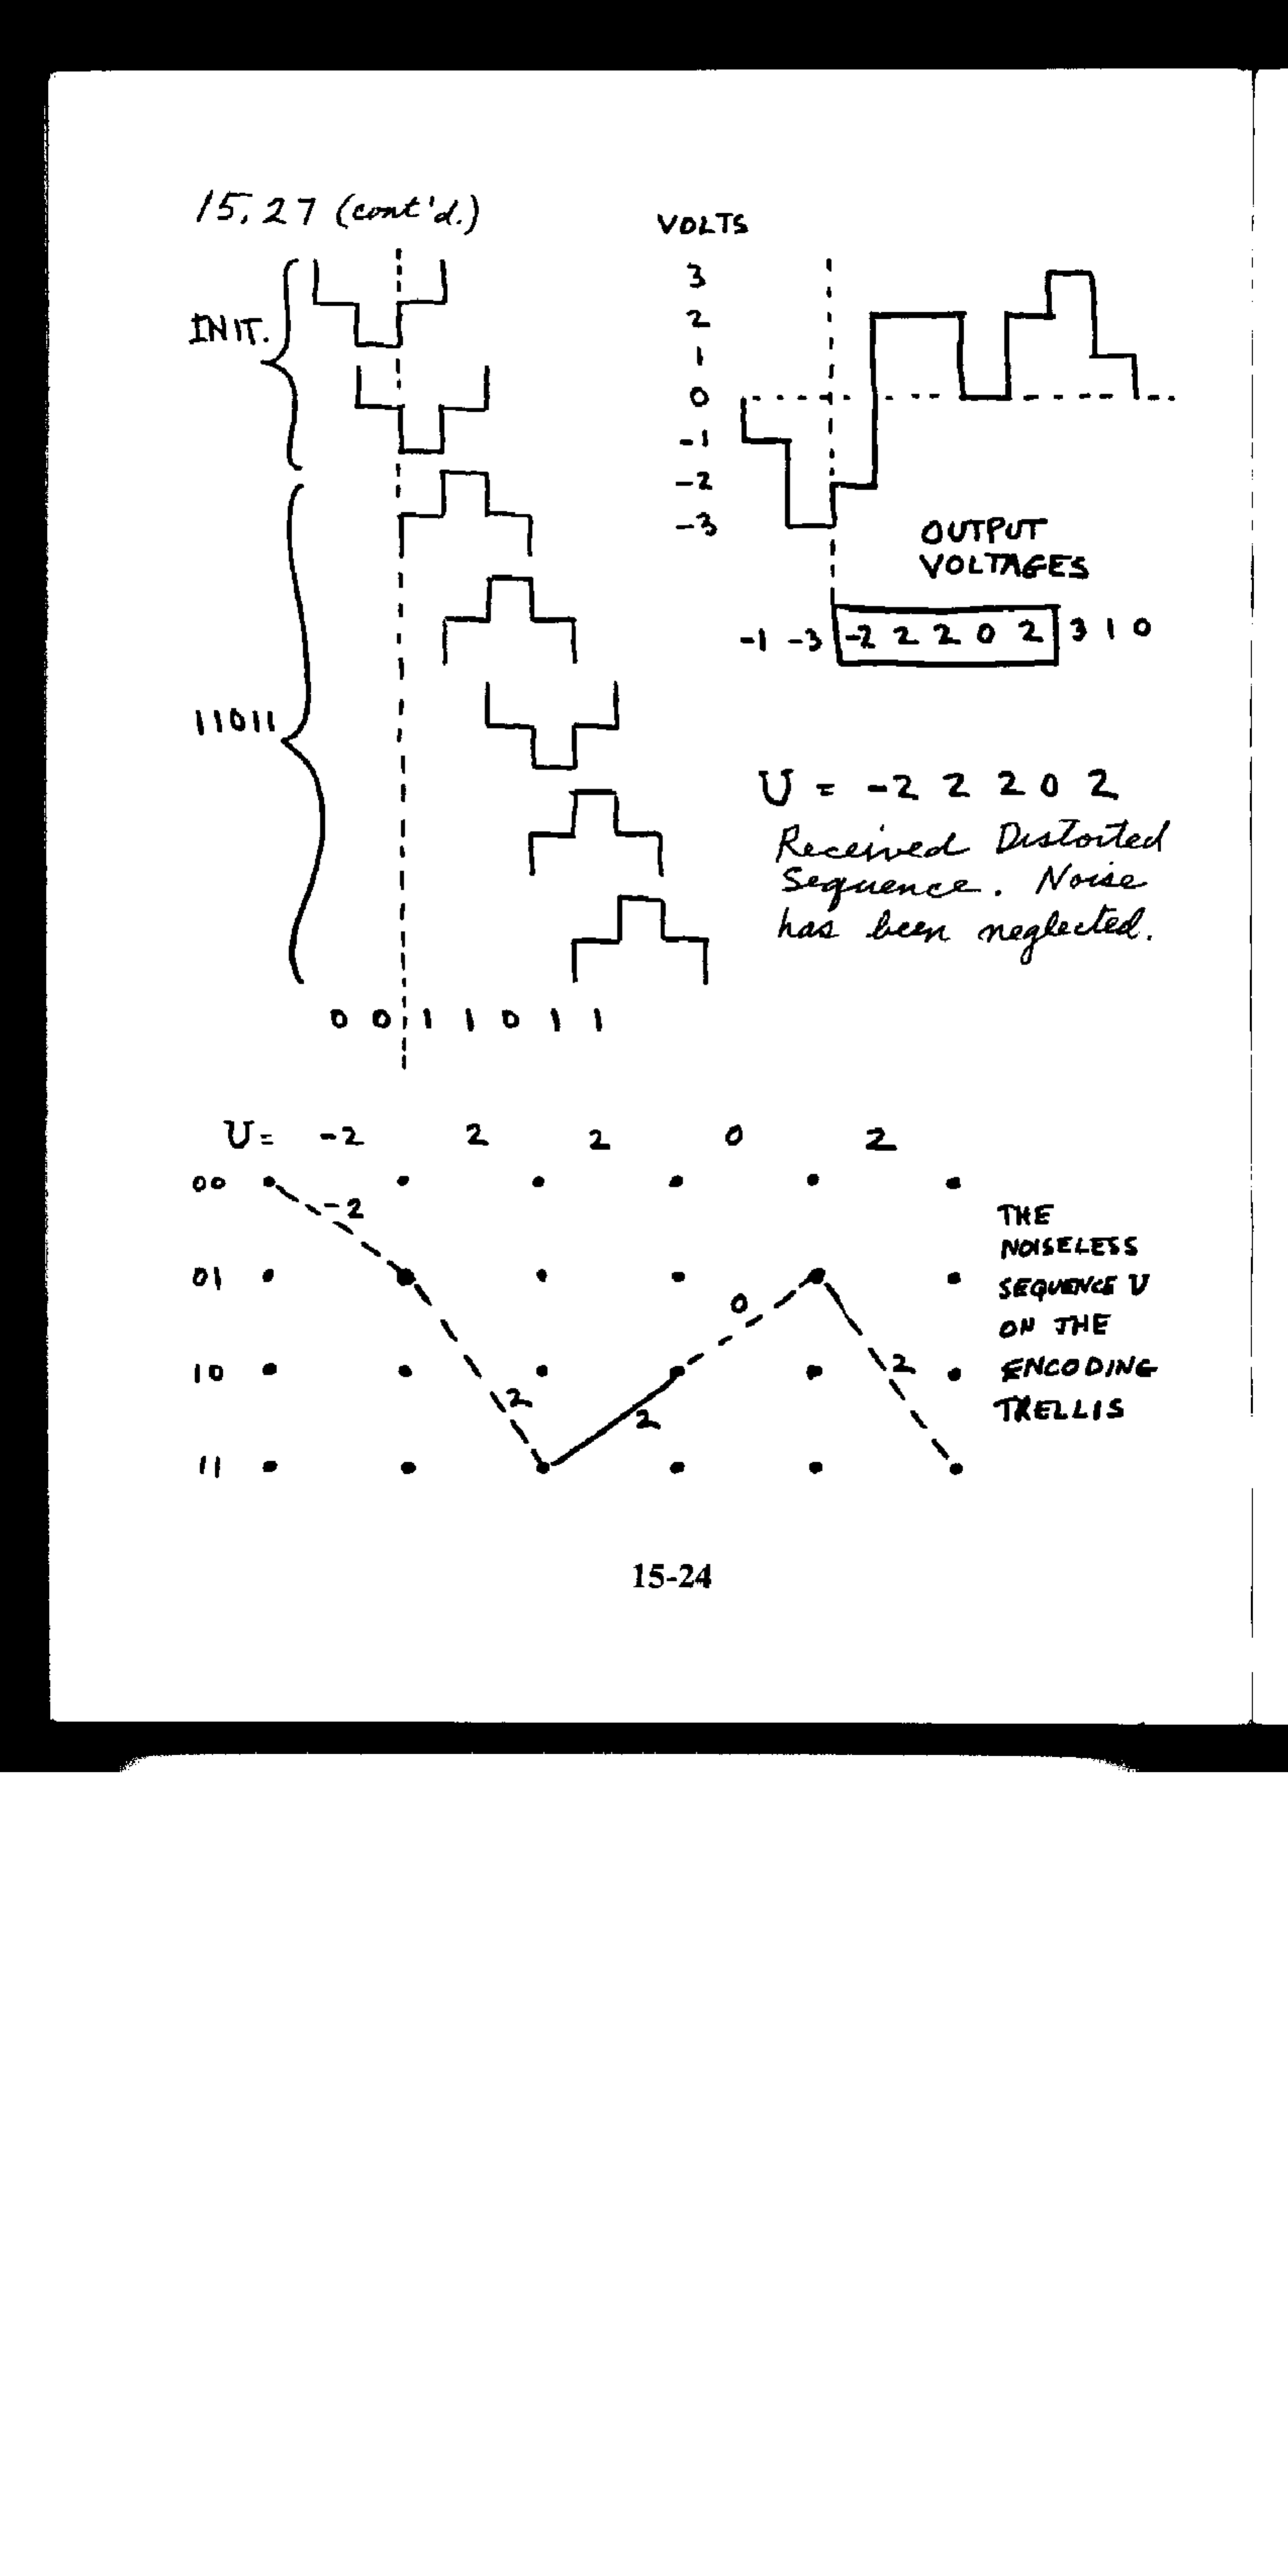 15.27 (cont'd.)
INIT.
11011
0 0 1 1 0 1 1
VOLTS
3
2
1
0
-1
-2
-3
OUTPUT
VOLTAGES
-1 -3 -2 2 2 0 2 3 1 0
U = -2 2 2 0 2
Received Distorted
Sequence. Noise
has been neglected.
U= -2 2 2 0 2
00
01
10
11
-2
2
2
0
2
THE
NOISELESS
SEQUENCE U
ON THE
ENCODING
TRELLIS
15-24